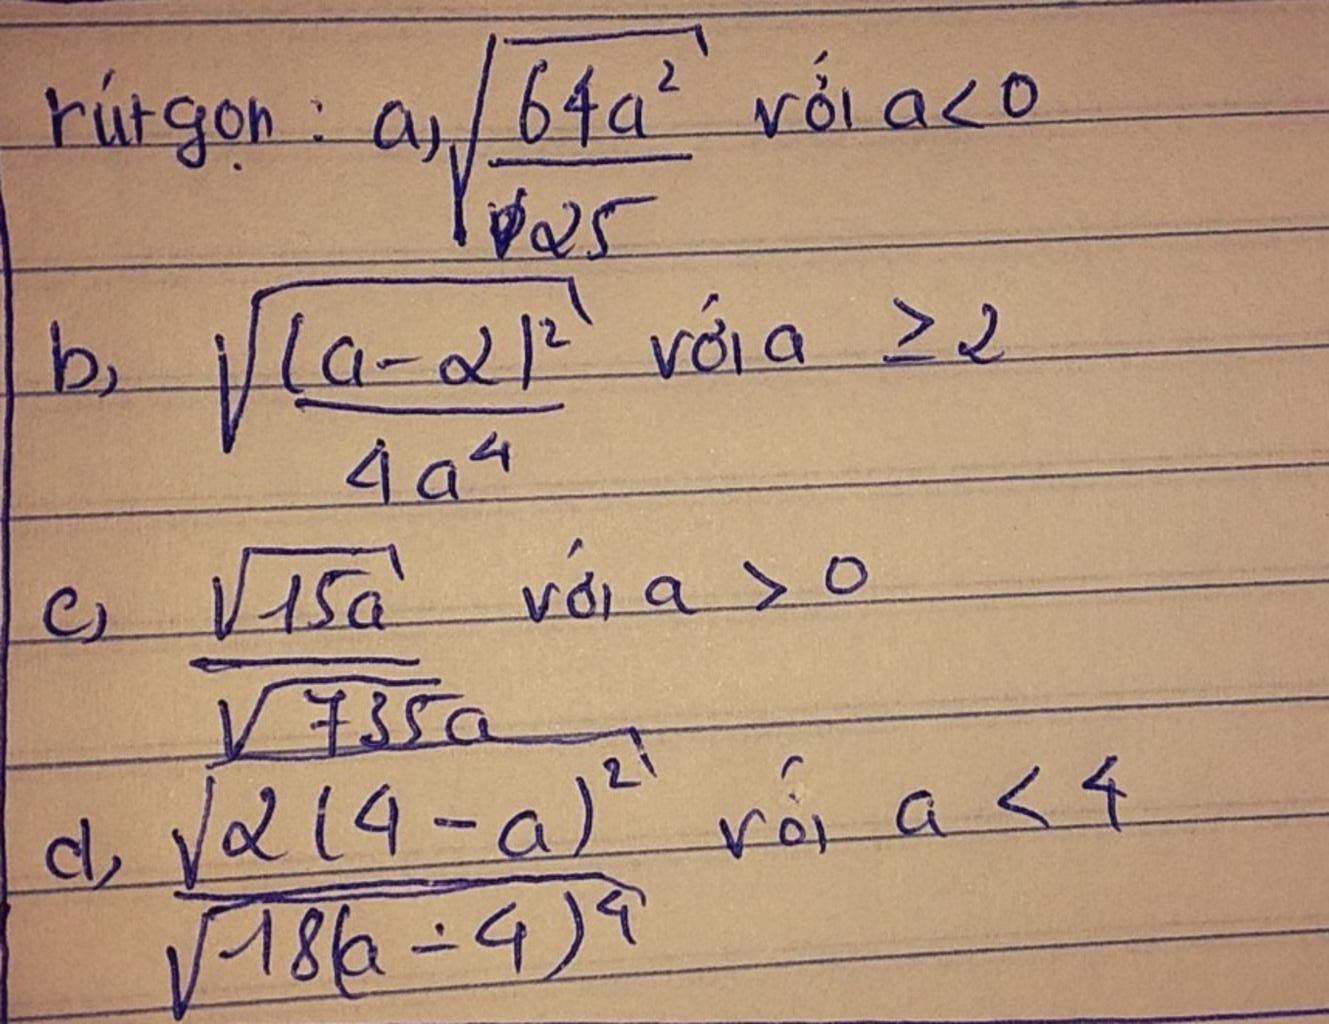 rút gọn : a, √(64a²/25) với a < 0
b, √((a-2)²/4a⁴) với a ≥ 2
c, √15a/√735a với a > 0
d, √2(4-a)²/√18(a-4)⁴ với a < 4